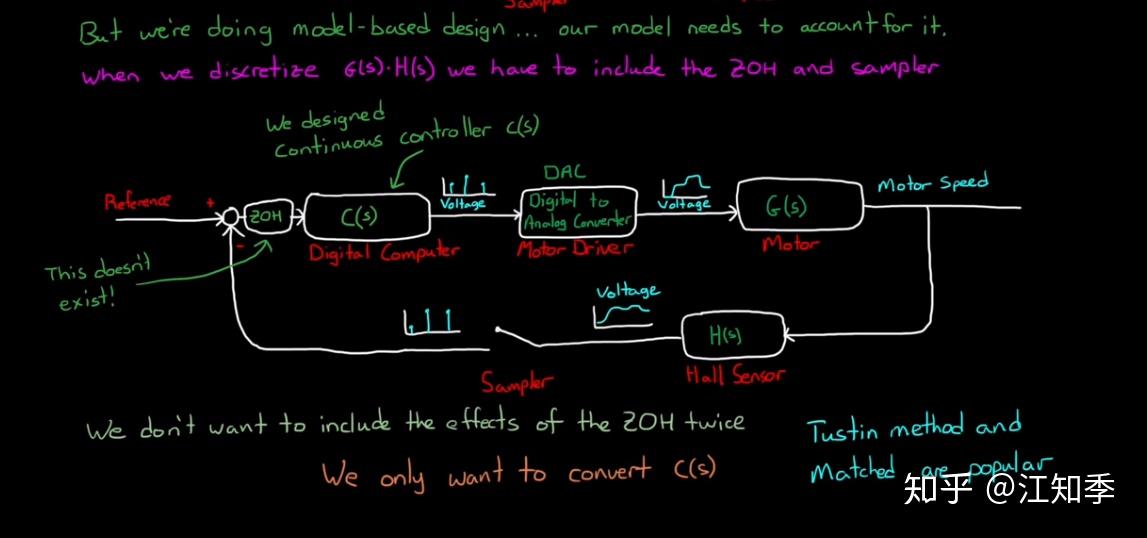 Sampler
But we're doing model-based design... our model needs to account for it.
When we discretize G(s)·H(s) we have to include the ZOH and sampler
We designed
continuous controller C(s)
Reference
+
-
ZOH
C(s)
Digital Computer
Voltage
DAC
Digital to
Analog Converter
Motor Driver
Voltage
G(s)
Motor
Motor Speed
This doesn't
exist!
Voltage
H(s)
Hall Sensor
Sampler
We don't want to include the effects of the ZOH twice
We only want to convert C(s)
Tustin method and
Matched are popular
知乎 @江知季